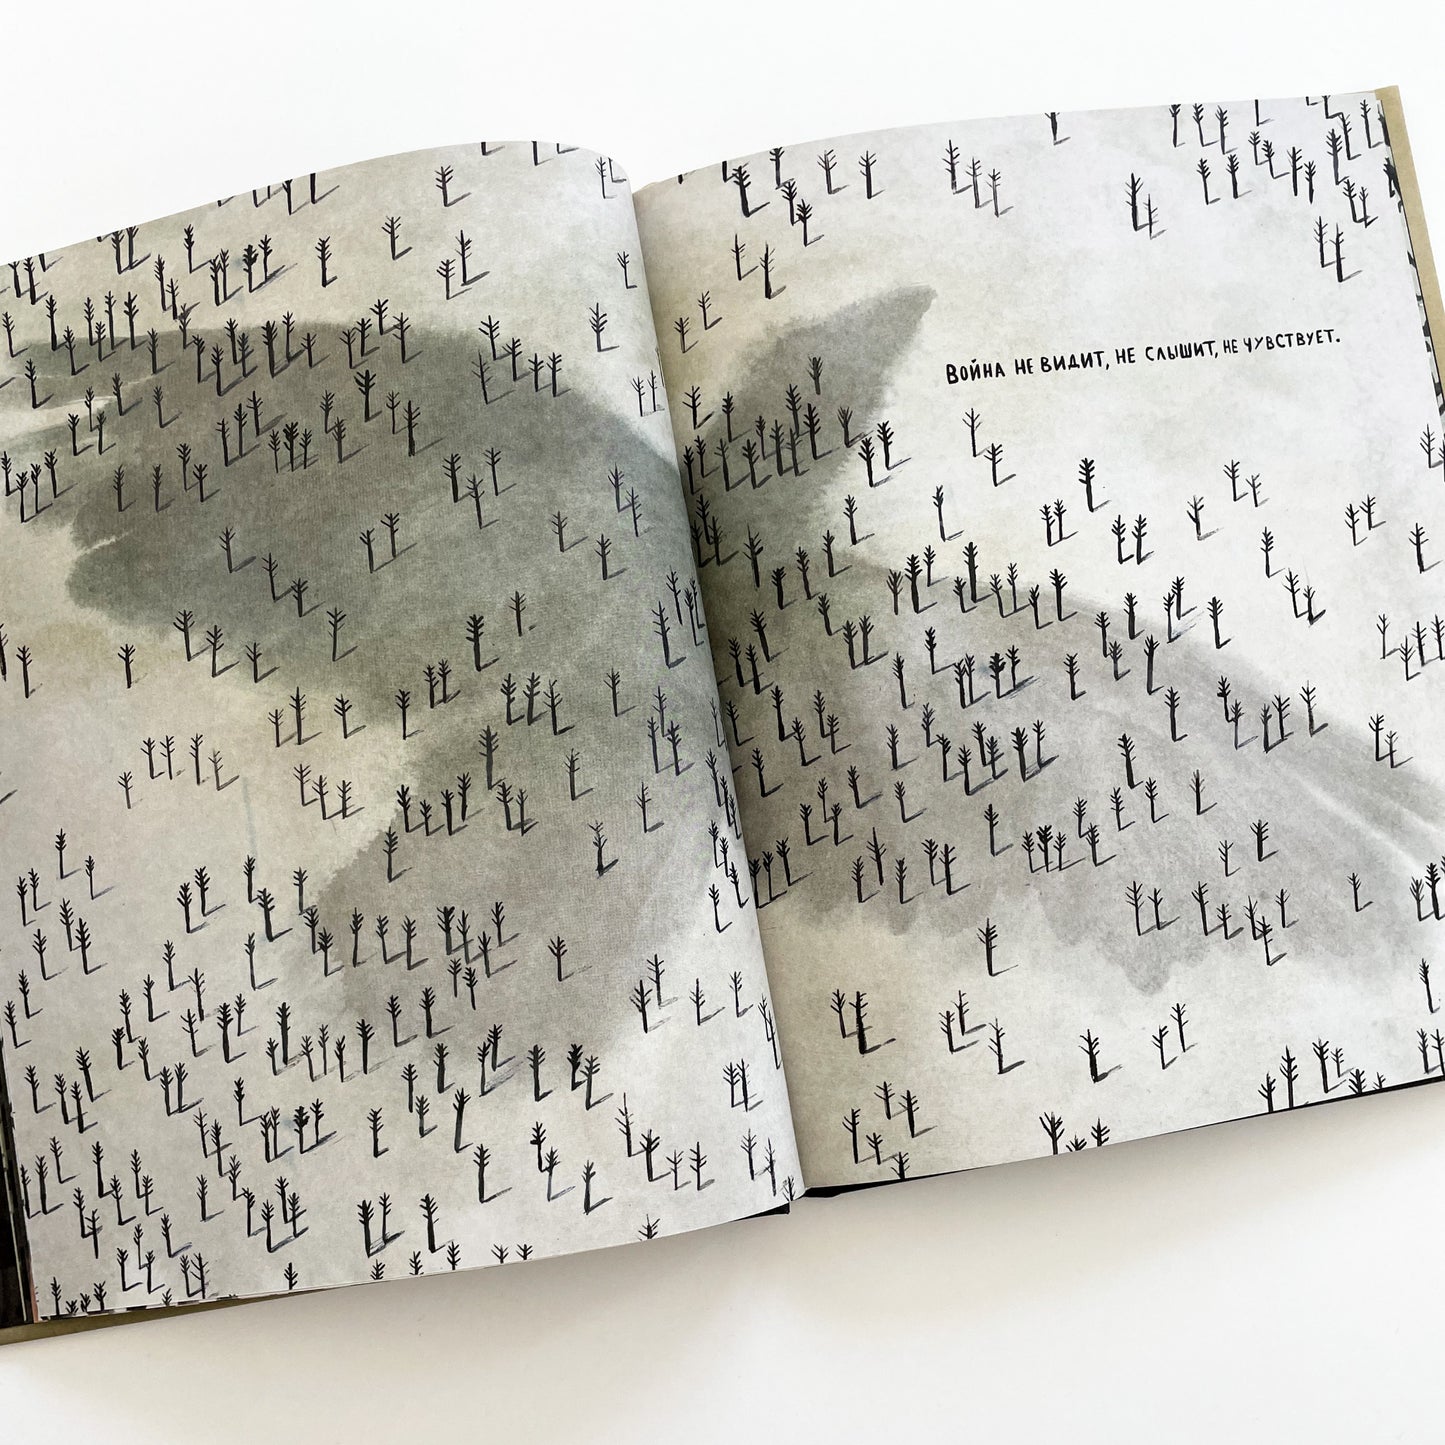 Война не видит, не слышит, не чувствует.